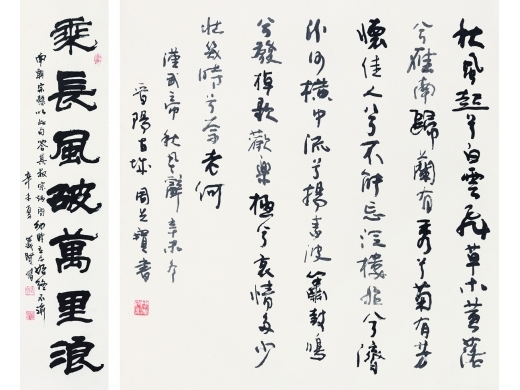 秋風起兮白雲飛草木黃落
兮雁南歸蘭有秀兮菊有芳
懷佳人兮不能忘泛樓船兮濟
汾河橫中流兮揚素波簫鼓鳴
兮發棹歌歡樂極兮哀情多少
壯幾時兮奈老何
漢武帝秋風辭辛未冬
晉陽古城周寶書
乘長風破萬里浪
南朝宋以此句答其叔宗炳幼時志始終不渝
辛未夏書